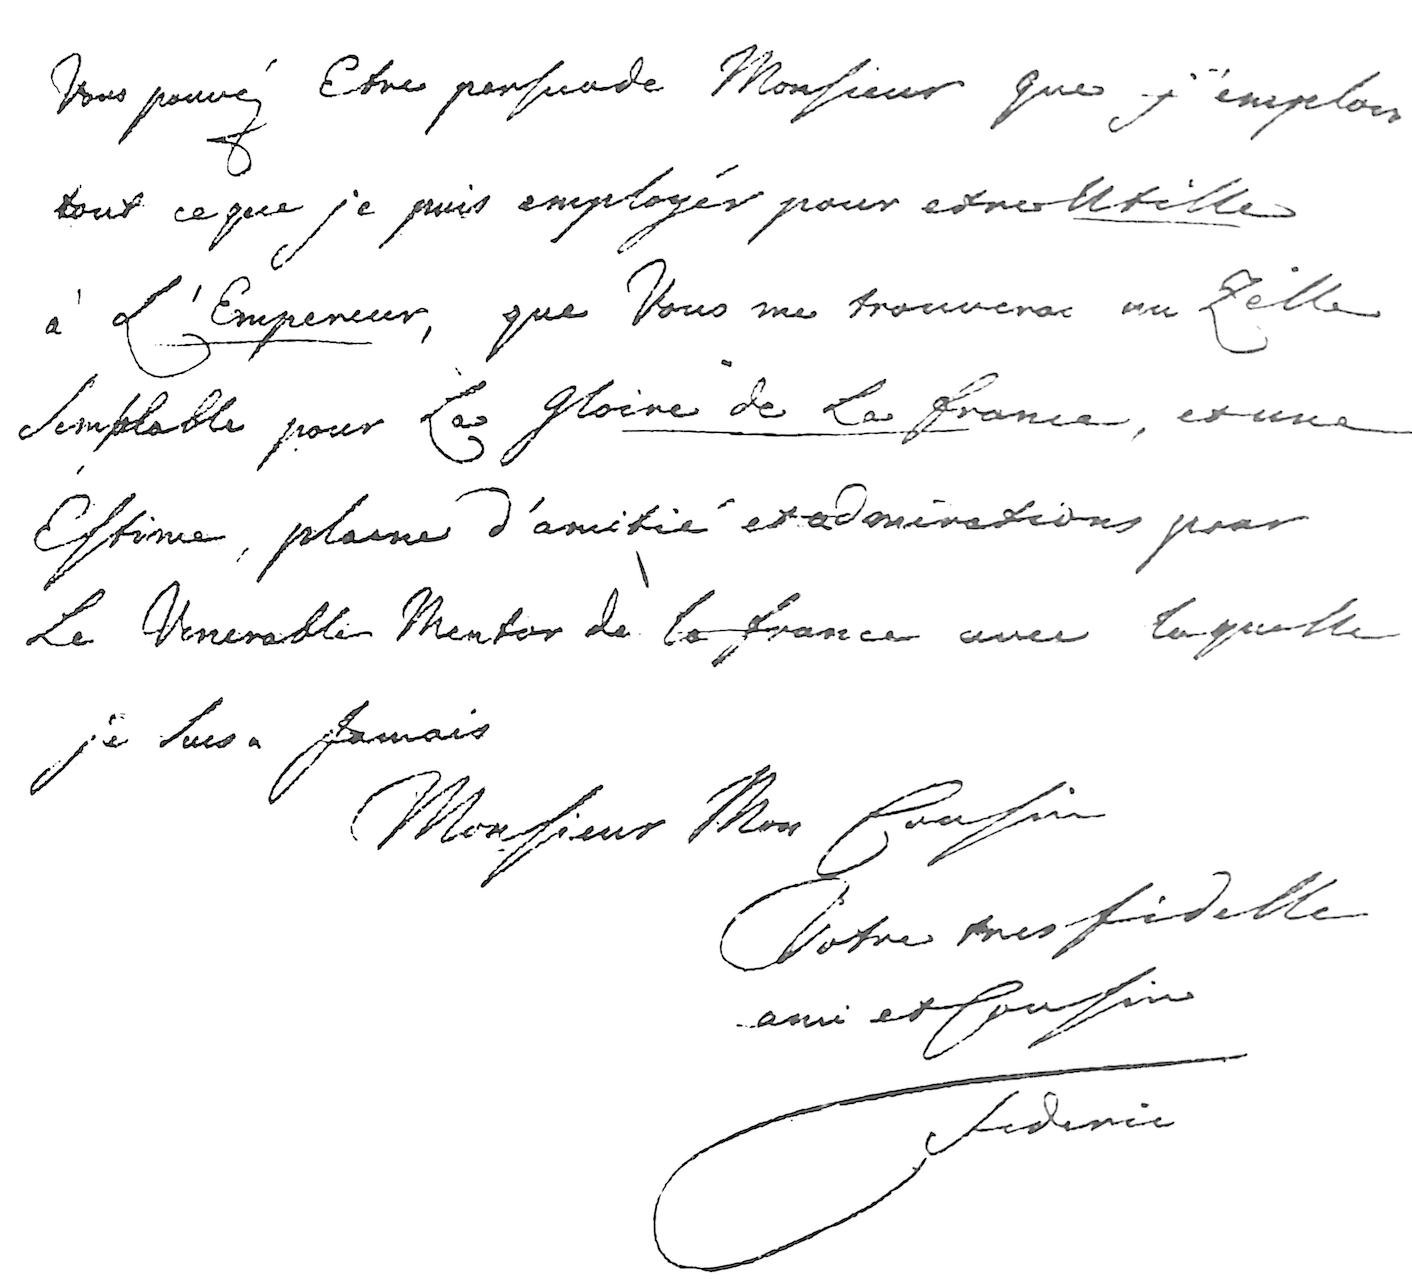 Vous pouvéz Etre persuade Monsieur que j'emploie
tout ce que je puis employér pour etre Utille
à L'Empereur, que Vous me trouverae un Zélle
Semplable pour La Gloire de La france, et une
Estime, plaine d'amitié et admirations pour
Le Venerable Mentor de la france avec laquelle
je suis a Jamais
Monsieur Mon Cousin
Votre tres fidelle
ami et Cousin
Federic